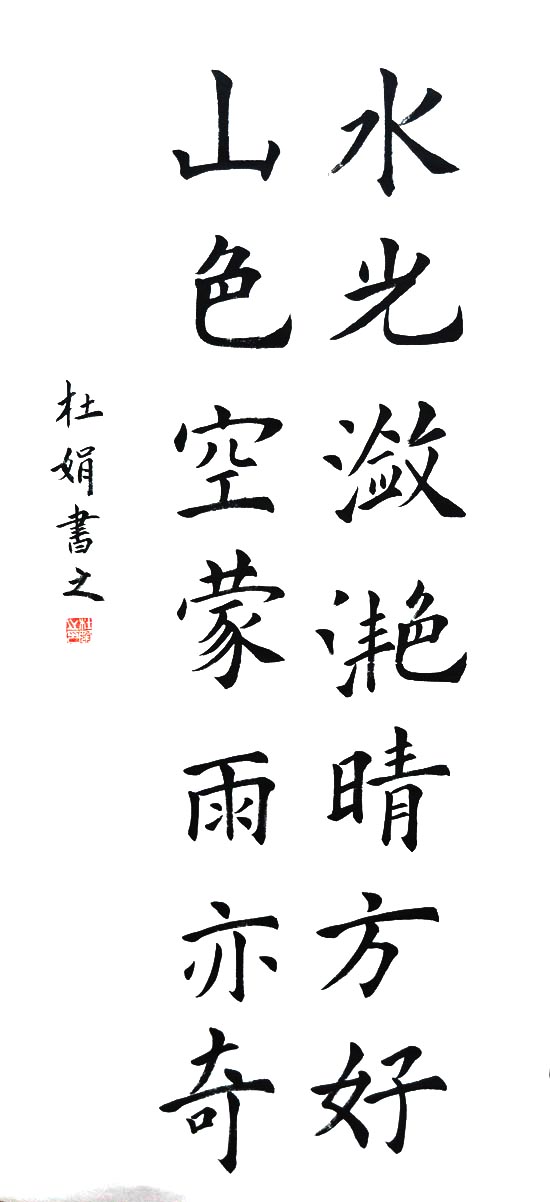 水光潋滟晴方好
山色空蒙雨亦奇
杜娟書之